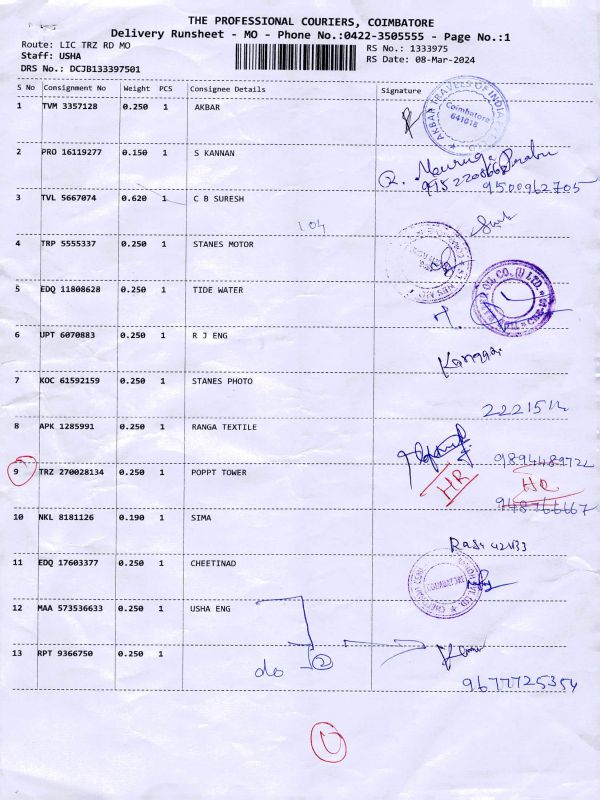 THE PROFESSIONAL COURIERS, COIMBATORE
Delivery Runsheet - MO - Phone No.:0422-3505555 - Page No.:1
Route: LIC TRZ RD MO
RS No.: 1333975
Staff: USHA
RS Date: 08-Mar-2024
DRS No.: DCJB133397501
S No Consignment No Weight PCS Consignee Details Signature
1 TVM 3357128 0.250 1 AKBAR
AKBAR TRAVELS OF INDIA
Coimbatore
641018
2 PRO 16119277 0.150 1 S KANNAN
2.
9500962705
3 TVL 5667074 0.620 1 C B SURESH
104
4 TRP 5555337 0.250 1 STANES MOTOR
5 EDQ 11808628 0.250 1 TIDE WATER
OIL CO.
6 UPT 6070883 0.250 1 R J ENG
7 KOC 61592159 0.250 1 STANES PHOTO
8 APK 1285991 0.250 1 RANGA TEXTILE
9 TRZ 270028134 0.250 1 POPPT TOWER
HR
HR
10 NKL 8181126 0.190 1 SIMA
11 EDQ 17603377 0.250 1 CHEETINAD
12 MAA 573536633 0.250 1 USHA ENG
13 RPT 9366750 0.250 1
do - 2
9677725354